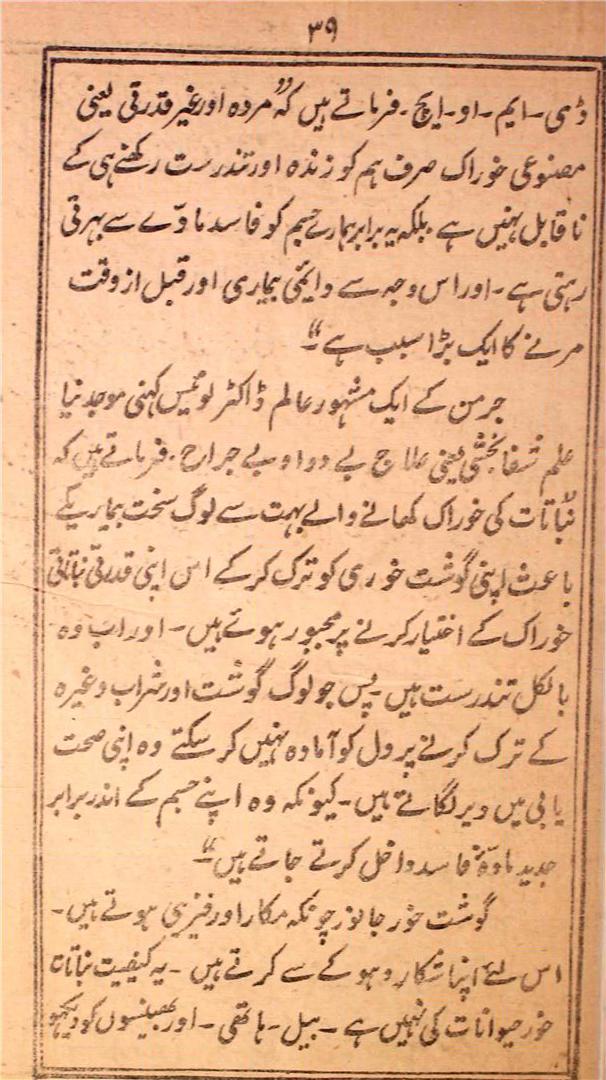 ۳۹
ڈی۔ایم۔او۔ایچ۔فرماتے ہیں کہ "مردہ اور غیر قدرتی یعنی
مصنوعی خوراک صرف ہم کو زندہ اور تندرست رکھنے ہی کے
ناقابل نہیں ہے۔بلکہ یہ برابر ہمارے جسم کو فاسد مادّے سے بہرتی
رہتی ہے۔اور اس وجہ سے دایمی بیماری اور قبل از وقت
مرنے کا ایک بڑا سبب ہے"۔
جرمن کے ایک مشہور عالم ڈاکٹر لوئیس کہنی موجد نیا
علم شفا بخشی یعنی علاج بے دوا و بے جراح۔فرماتے ہیں کہ
نباتات کی خوراک کھانے والے بہت سے لوگ سخت بیماریکے
باعث اپنی گوشت خوری کو ترک کرکے اس اپنی قدرتی نباتاتی
خوراک کے اختیار کرنے پر مجبور ہوئے ہیں۔اور اب وہ
بالکل تندرست ہیں۔پس جو لوگ گوشت اور شراب وغیرہ
کے ترک کرنے پر دل کو آمادہ نہیں کرسکتے وہ اپنی صحت
یابی میں دیر لگاتے ہیں۔کیونکہ وہ اپنے جسم کے اندر برابر
جدید مادۂ فاسد داخل کرتے جاتے ہیں"۔
گوشت خور جانور چونکہ مکار اور فریبی ہوتے ہیں۔
اس لئے اپنا شکار دہوکے سے کرتے ہیں۔یہ کیفیت نباتات
خور حیوانات کی نہیں ہے۔بیل۔ہاتھی۔اور بھینسوں کو دیکھو